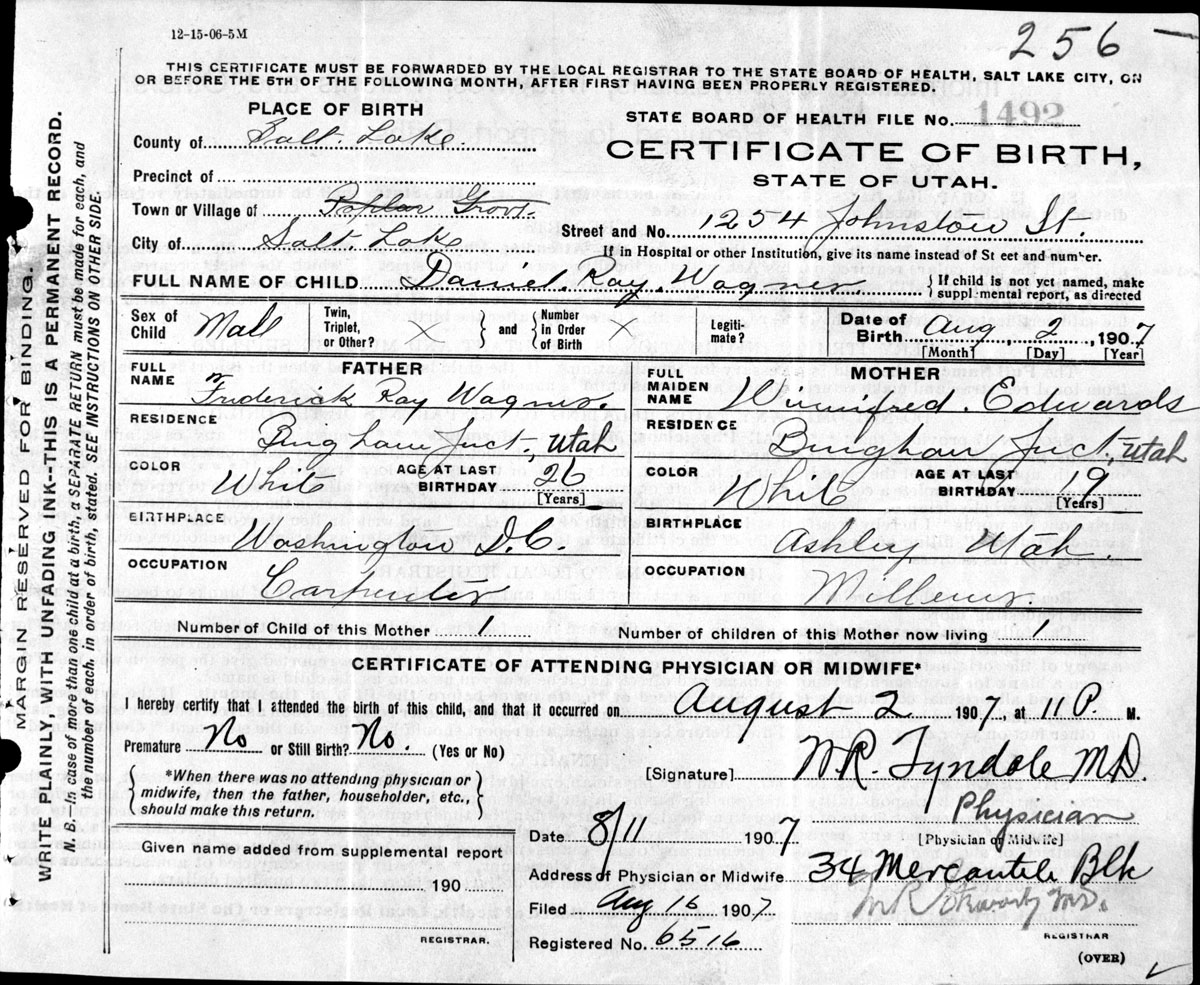 12-15-06-5M
256
THIS CERTIFICATE MUST BE FORWARDED BY THE LOCAL REGISTRAR TO THE STATE BOARD OF HEALTH, SALT LAKE CITY, ON
OR BEFORE THE 5TH OF THE FOLLOWING MONTH, AFTER FIRST HAVING BEEN PROPERLY REGISTERED.
PLACE OF BIRTH
STATE BOARD OF HEALTH FILE No. 1492
County of Salt Lake.
CERTIFICATE OF BIRTH,
STATE OF UTAH.
Precinct of
Town or Village of Poplar Grove.
Street and No. 1254 Johnston St.
City of Salt Lake
If in Hospital or other Institution, give its name instead of St eet and number.
FULL NAME OF CHILD Daniel Ray Wagner { If child is not yet named, make
suppl mental report, as directed
Sex of Child Male
Twin, Triplet, or Other? X } and { Number in Order of Birth X
Legiti- mate?
Date of Birth Aug, 2, 1907
[Month] [Day] [Year]
FATHER
FULL NAME Frederick Ray Wagner.
RESIDENCE Bingham Junct, Utah
COLOR White AGE AT LAST BIRTHDAY 26 [Years]
BIRTHPLACE Washington D.C.
OCCUPATION Carpenter
MOTHER
FULL MAIDEN NAME Winnifred. Edwards
RESIDENCE Bingham Junct, Utah
COLOR White AGE AT LAST BIRTHDAY 19 [Years]
BIRTHPLACE Ashley Utah.
OCCUPATION
Number of Child of this Mother 1 Number of children of this Mother now living 1
CERTIFICATE OF ATTENDING PHYSICIAN OR MIDWIFE*
I hereby certify that I attended the birth of this child, and that it occurred on August 2 1907, at 11 P. M.
Premature No or Still Birth? No. (Yes or No)
{ *When there was no attending physician or
midwife, then the father, householder, etc.,
should make this return. }
[Signature] W.R. Tyndale M.D.
Physician
[Physician of Midwife]
Given name added from supplemental report
190
REGISTRAR.
Date 8/11 1907
Address of Physician or Midwife 34 Mercantile Blk
Filed Aug 16 1907
Registered No. 6516
REGISTRAR
(OVER)
MARGIN RESERVED FOR BINDING.
WRITE PLAINLY, WITH UNFADING INK--THIS IS A PERMANENT RECORD.
N. B.—In case of more than one child at a birth, a SEPARATE RETURN must be made for each, and
the number of each, in order of birth, stated. SEE INSTRUCTIONS ON OTHER SIDE.